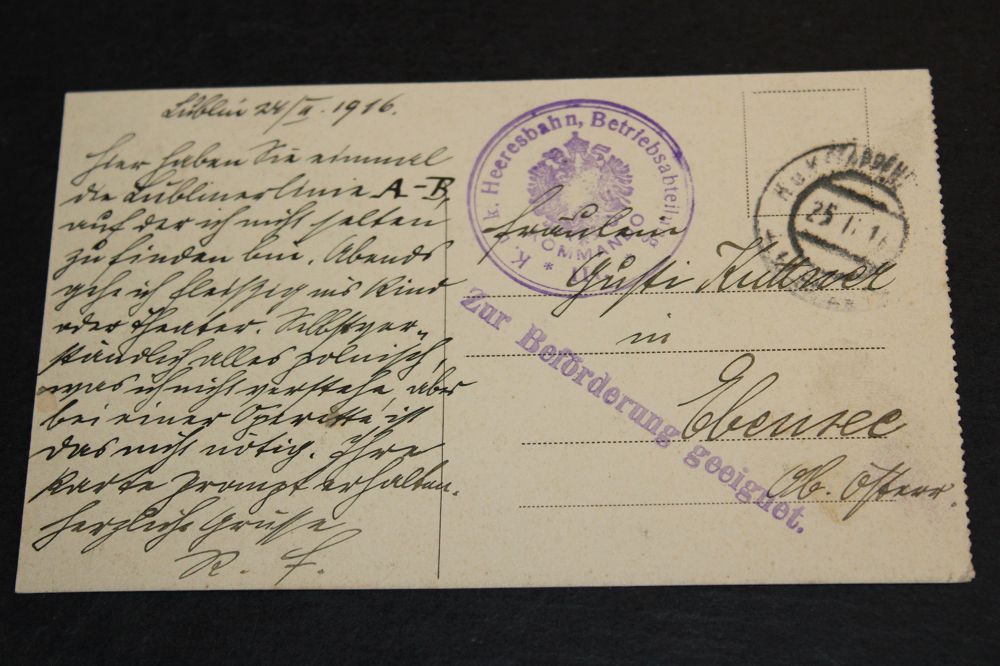 Lublin 24/V. 1916.
Hier haben Sie einmal
die Lublinerlinie A-B,
auf der ich nicht selten
zu finden bin. Abends
gehe ich fleißig ins Kino
oder Theater. Selbstver-
ständlich alles polnisch,
was ich nicht verstehe, aber
bei einer Operette ist
das nicht nötig. Ihre
Karte prompt erhalten.
Herzliche Grüsse
R. F.
K. u. k. Heeresbahn, Betriebsabteilung
KOMMANDO
Zur Beförderung geeignet.
K.u.K. ETAPPEN
25. 16
Fräulein
Gusti
in
Ebensee
Ob. Österr.